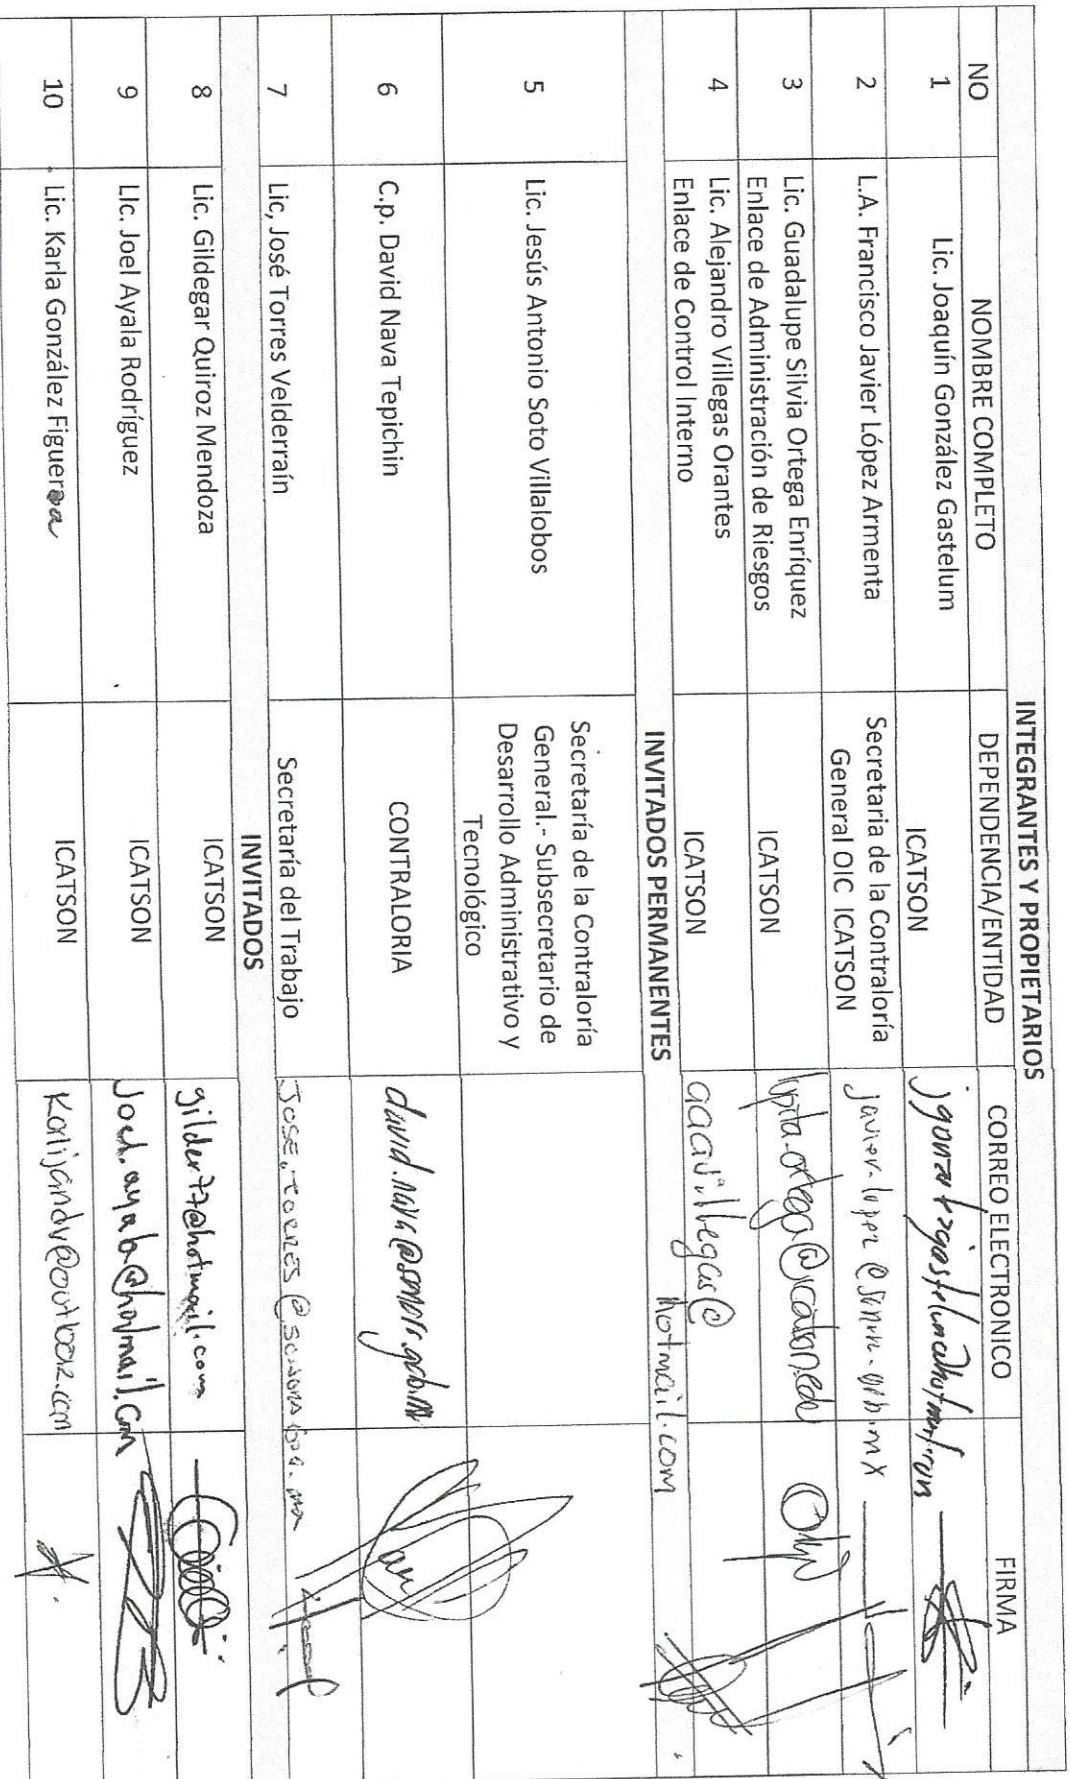 INTEGRANTES Y PROPIETARIOS
NO NOMBRE COMPLETO DEPENDENCIA/ENTIDAD CORREO ELECTRONICO FIRMA
1 Lic. Joaquín González Gastelum ICATSON
2 L.A. Francisco Javier López Armenta Secretaria de la Contraloría
General OIC ICATSON
3 Lic. Guadalupe Silvia Ortega Enríquez
Enlace de Administración de Riesgos ICATSON
4 Lic. Alejandro Villegas Orantes
Enlace de Control Interno ICATSON
hotmail.com
INVITADOS PERMANENTES
5 Lic. Jesús Antonio Soto Villalobos Secretaría de la Contraloría
General.- Subsecretario de
Desarrollo Administrativo y
Tecnológico
6 C.p. David Nava Tepichin CONTRALORIA
7 Lic, José Torres Velderraín Secretaría del Trabajo
INVITADOS
8 Lic. Gildegar Quiroz Mendoza ICATSON gilder77@hotmail.com
9 LIc. Joel Ayala Rodríguez ICATSON Joel.ayala@hotmail.com
10 Lic. Karla González Figueroa ICATSON